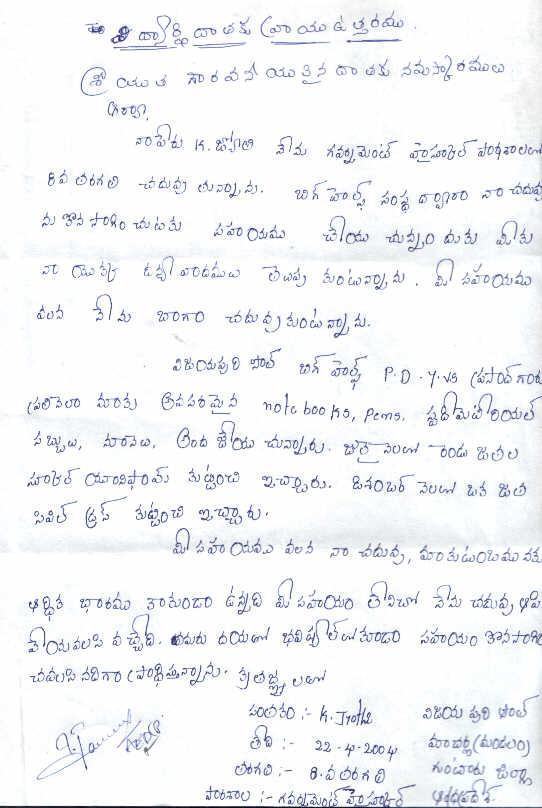 విద్యార్థి దాతకు వ్రాయు ఉత్తరము.
శ్రీ యుత గౌరవనీయులైన దాతకు నమస్కారములు.
ఆర్యా,
నా పేరు K. జ్యోతి నేను గవర్నమెంట్ హైస్కూల్ పాఠశాలలో
8వ తరగతి చదువు తున్నాను. బిగ్ హెల్ప్ సంస్థ ద్వారా నా చదువు
ను కొన సాగించుటకు సహాయము చేయు చున్నందుకు మీకు
నా యొక్క ధన్యవాదములు తెలుపు కుంటున్నాను. మీ సహాయము
వలన నేను బాగా చదువుకుంటున్నాను.
విజయపురి సౌత్ బిగ్ హెల్ప్ P.D. Y.VS ప్రసాద్ గారు
ప్రతినెలా మాకు అవసరమైన note books, Pens, స్టడీమెటీరియల్
సబ్బులు, నూనెలు, అంద జేయు చున్నారు. జూలై నెలలో రెండు జతల
స్కూల్ యూనిఫామ్ కుట్టించి ఇచ్చారు. డిశంబర్ నెలలో ఒక జత
సివిల్ డ్రస్ కుట్టించి ఇచ్చారు.
మీ సహాయము వలన నా చదువు, మా కుటుంబమునకు
ఆర్థిక భారము కాకుండా ఉన్నది మీ సహాయం లేనిచో నేను చదువు ఆపి
వేయవలసి వచ్చేది. దయతో భవిష్యత్ లో కూడా సహాయం కొనసాగిం
చవలసినదిగా ప్రార్థిస్తున్నాను. కృతజ్ఞతలతో
సంతకం :- K. Jyothi విజయ పురి సౌత్
తేది :- 22-4-2004 మాచర్ల (మండలం)
తరగతి :- 8.వ తరగతి గుంటూరు జిల్లా
పాఠశాల :- గవర్నమెంట్ హైస్కూల్ ఆంధ్రప్రదేశ్.